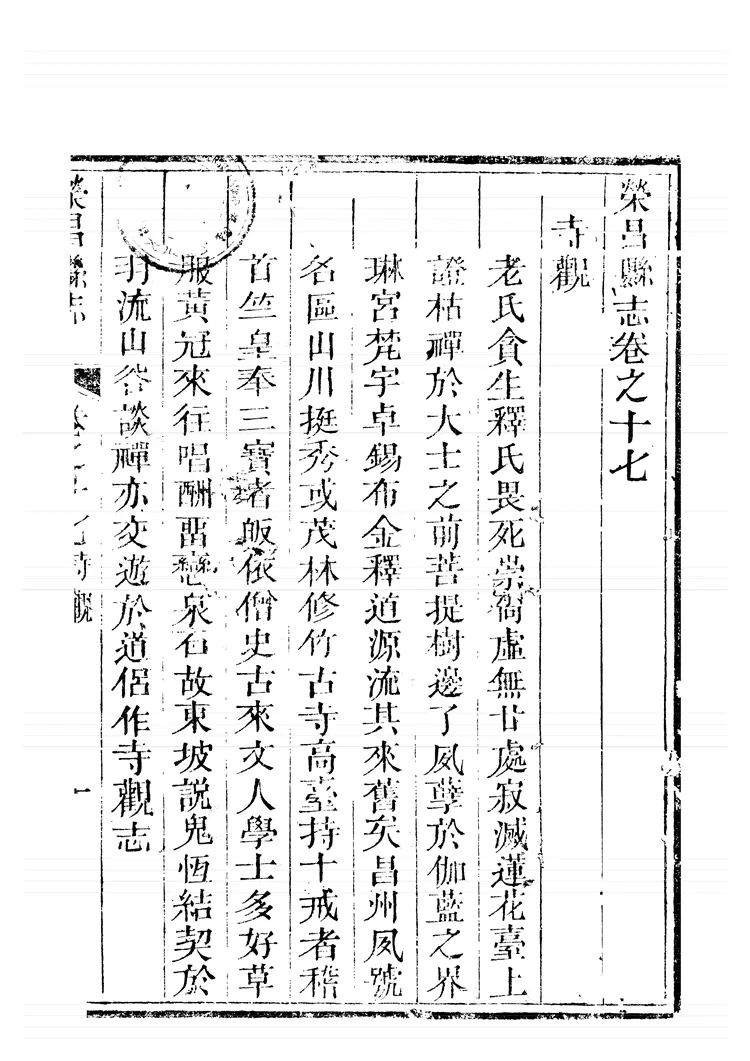 榮昌縣志卷之十七
寺觀
老氏貪生釋氏畏死崇尙虛無甘處寂滅蓮花臺上
證枯禪於大士之前菩提樹邊了夙孽於伽藍之界
琳宮梵宇卓錫布金釋道源流其來舊矣昌州夙號
名區山川挺秀或茂林修竹古寺高臺持十戒者稽
首竺皇奉三寶者皈依僧史古來文人學士多好草
服黃冠來往唱酬畱戀泉石故東坡說鬼恆結契於
羽流山谷談禪亦交遊於道侶作寺觀志
榮昌縣志
卷之十七寺觀
一